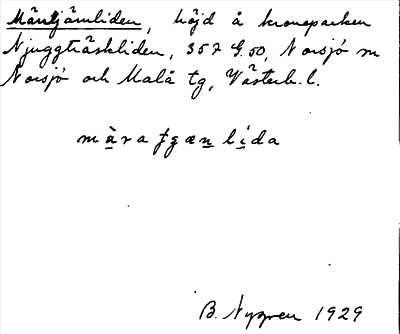 Mäntjämliden, höjd å kronoparken
Njuggträskliden, 357 G.50, Norsjö sn
Norsjö och Malå tg, Västerb. l.
B. Nygren 1929